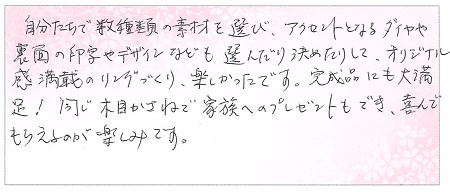 自分たちで数種類の素材を選び、アクセントとなるダイヤや
裏面の印字やデザインなども選んだり決めたりして、オリジナル
感満載のリングづくり、楽しかったです。完成品にも大満
足！同じ木目かさねで家族へのプレゼントもでき、喜んで
もらえるのが楽しみです。